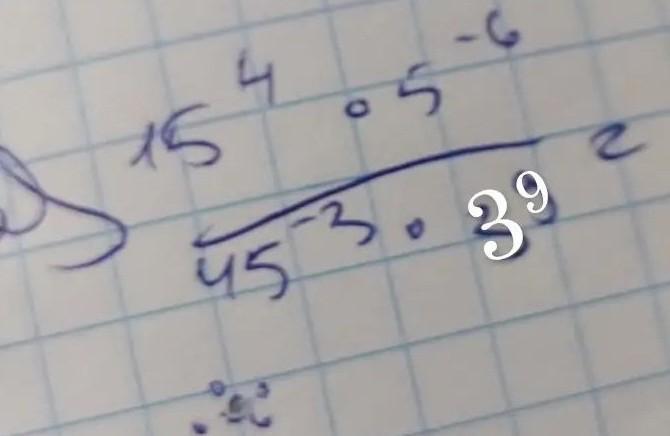 15⁴ · 5⁻⁶ =
45⁻³ · 3⁹